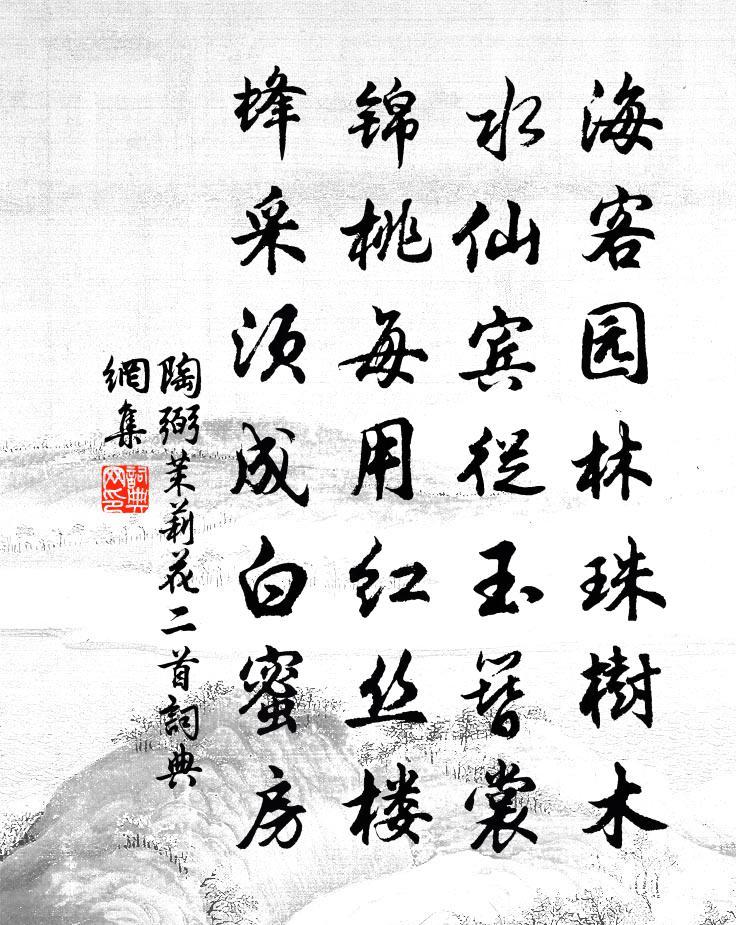 海客园林珠樹木
水仙宾從玉簪裳
锦桃每用红丝楼
蜂采须成白蜜房
陶弼茉莉花二首詞典
網集
詞典网印